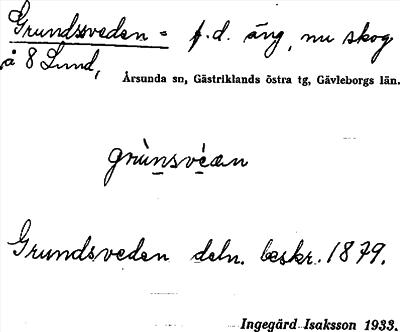 Grundsveden = f.d. äng, nu skog
å 8 Lund,
Årsunda sn, Gästriklands östra tg, Gävleborgs län.
grùnsvèan
Grundsveden deln. beskr. 1879.
Ingegärd Isaksson 1933.